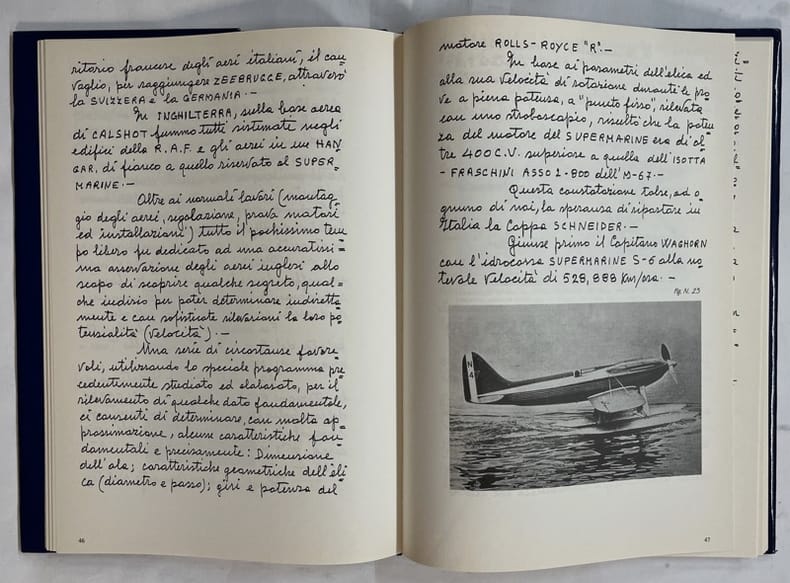 ritorio francese degli aerei italiani, il con=
vaglio, per raggiungere ZEEBRUGGE, attraversò
la SVIZZERA e la GERMANIA.—
In INGHILTERRA, sulla base aerea
di CALSHOT fummo tutti sistemati negli
edifici della R.A.F. e gli aerei in un HAN=
GAR, di fianco a quello riservato al SUPER=
MARINE.—
Oltre ai normali lavori (montag=
gio degli aerei, regolazione, prova motori
ed installazioni) tutto il pochissimo tem=
po libero fu dedicato ad una accuratissi=
ma osservazione degli aerei inglesi allo
scopo di scoprire qualche segreto, qual=
che indizio per poter determinare indiretta=
mente e con sofisticate rilevazioni la loro po=
tenzialità (velocità).—
Una serie di circostanze favore=
voli, utilizzando lo speciale programma pre=
cedentemente studiato ed elaborato, per il
rilevamento di qualche dato fondamentale,
ci consentì di determinare, con molta ap=
prossimazione, alcune caratteristiche fon=
damentali e precisamente: Dimensione
dell'ala; caratteristiche geometriche dell'eli=
ca (diametro e passo); giri e potenza del
46
motore ROLLS-ROYCE "R".—
In base ai parametri dell'elica ed
alla sua velocità di rotazione durante le pro=
ve a piena potenza, a "punto fisso", rilevata
con uno stroboscopio, risultò che la poten=
za del motore del SUPERMARINE era di ol=
tre 400 C.V. superiore a quella dell'ISOTTA
-FRASCHINI ASSO 2-800 dell'M-67.—
Questa constatazione tolse, ad o=
gnuno di noi, la speranza di riportare in
Italia la Coppa SCHNEIDER.—
Giunse primo il Capitano WAGHORN
con l'idrocorsa SUPERMARINE S-6 alla no=
tevole velocità di 528,888 Km/ora.—
Fig. N. 23
N
47